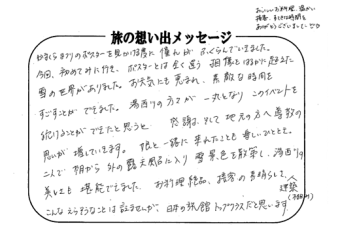 おいしいお料理、温かい
接客、すてきな時間を
ありがとうございました
旅の想い出メッセージ
かまくらまつりのポスターを見かける度に憧れがふくらんでいきました。
今回、初めてみに行き、ポスターとは全く違う想像をはるかに超えた
雪の世界がありました。お天気にも恵まれ、素敵な時間を
すごすことができました。湯西川の方々が一丸となりこのイベントを
続けることができたと思うと 感謝、そして地元の方へ尊敬の
思いが増していきます。娘と一緒に来れたことも嬉しいひととき。
二人で朝から外の露天風呂に入り雪景色を散策し、湯西川の
美しさも堪能できました。お料理絶品、接客の素晴らしさ、
建築
こんなえらそうなことは言えませんが、日本の旅館トップクラスだと思います。